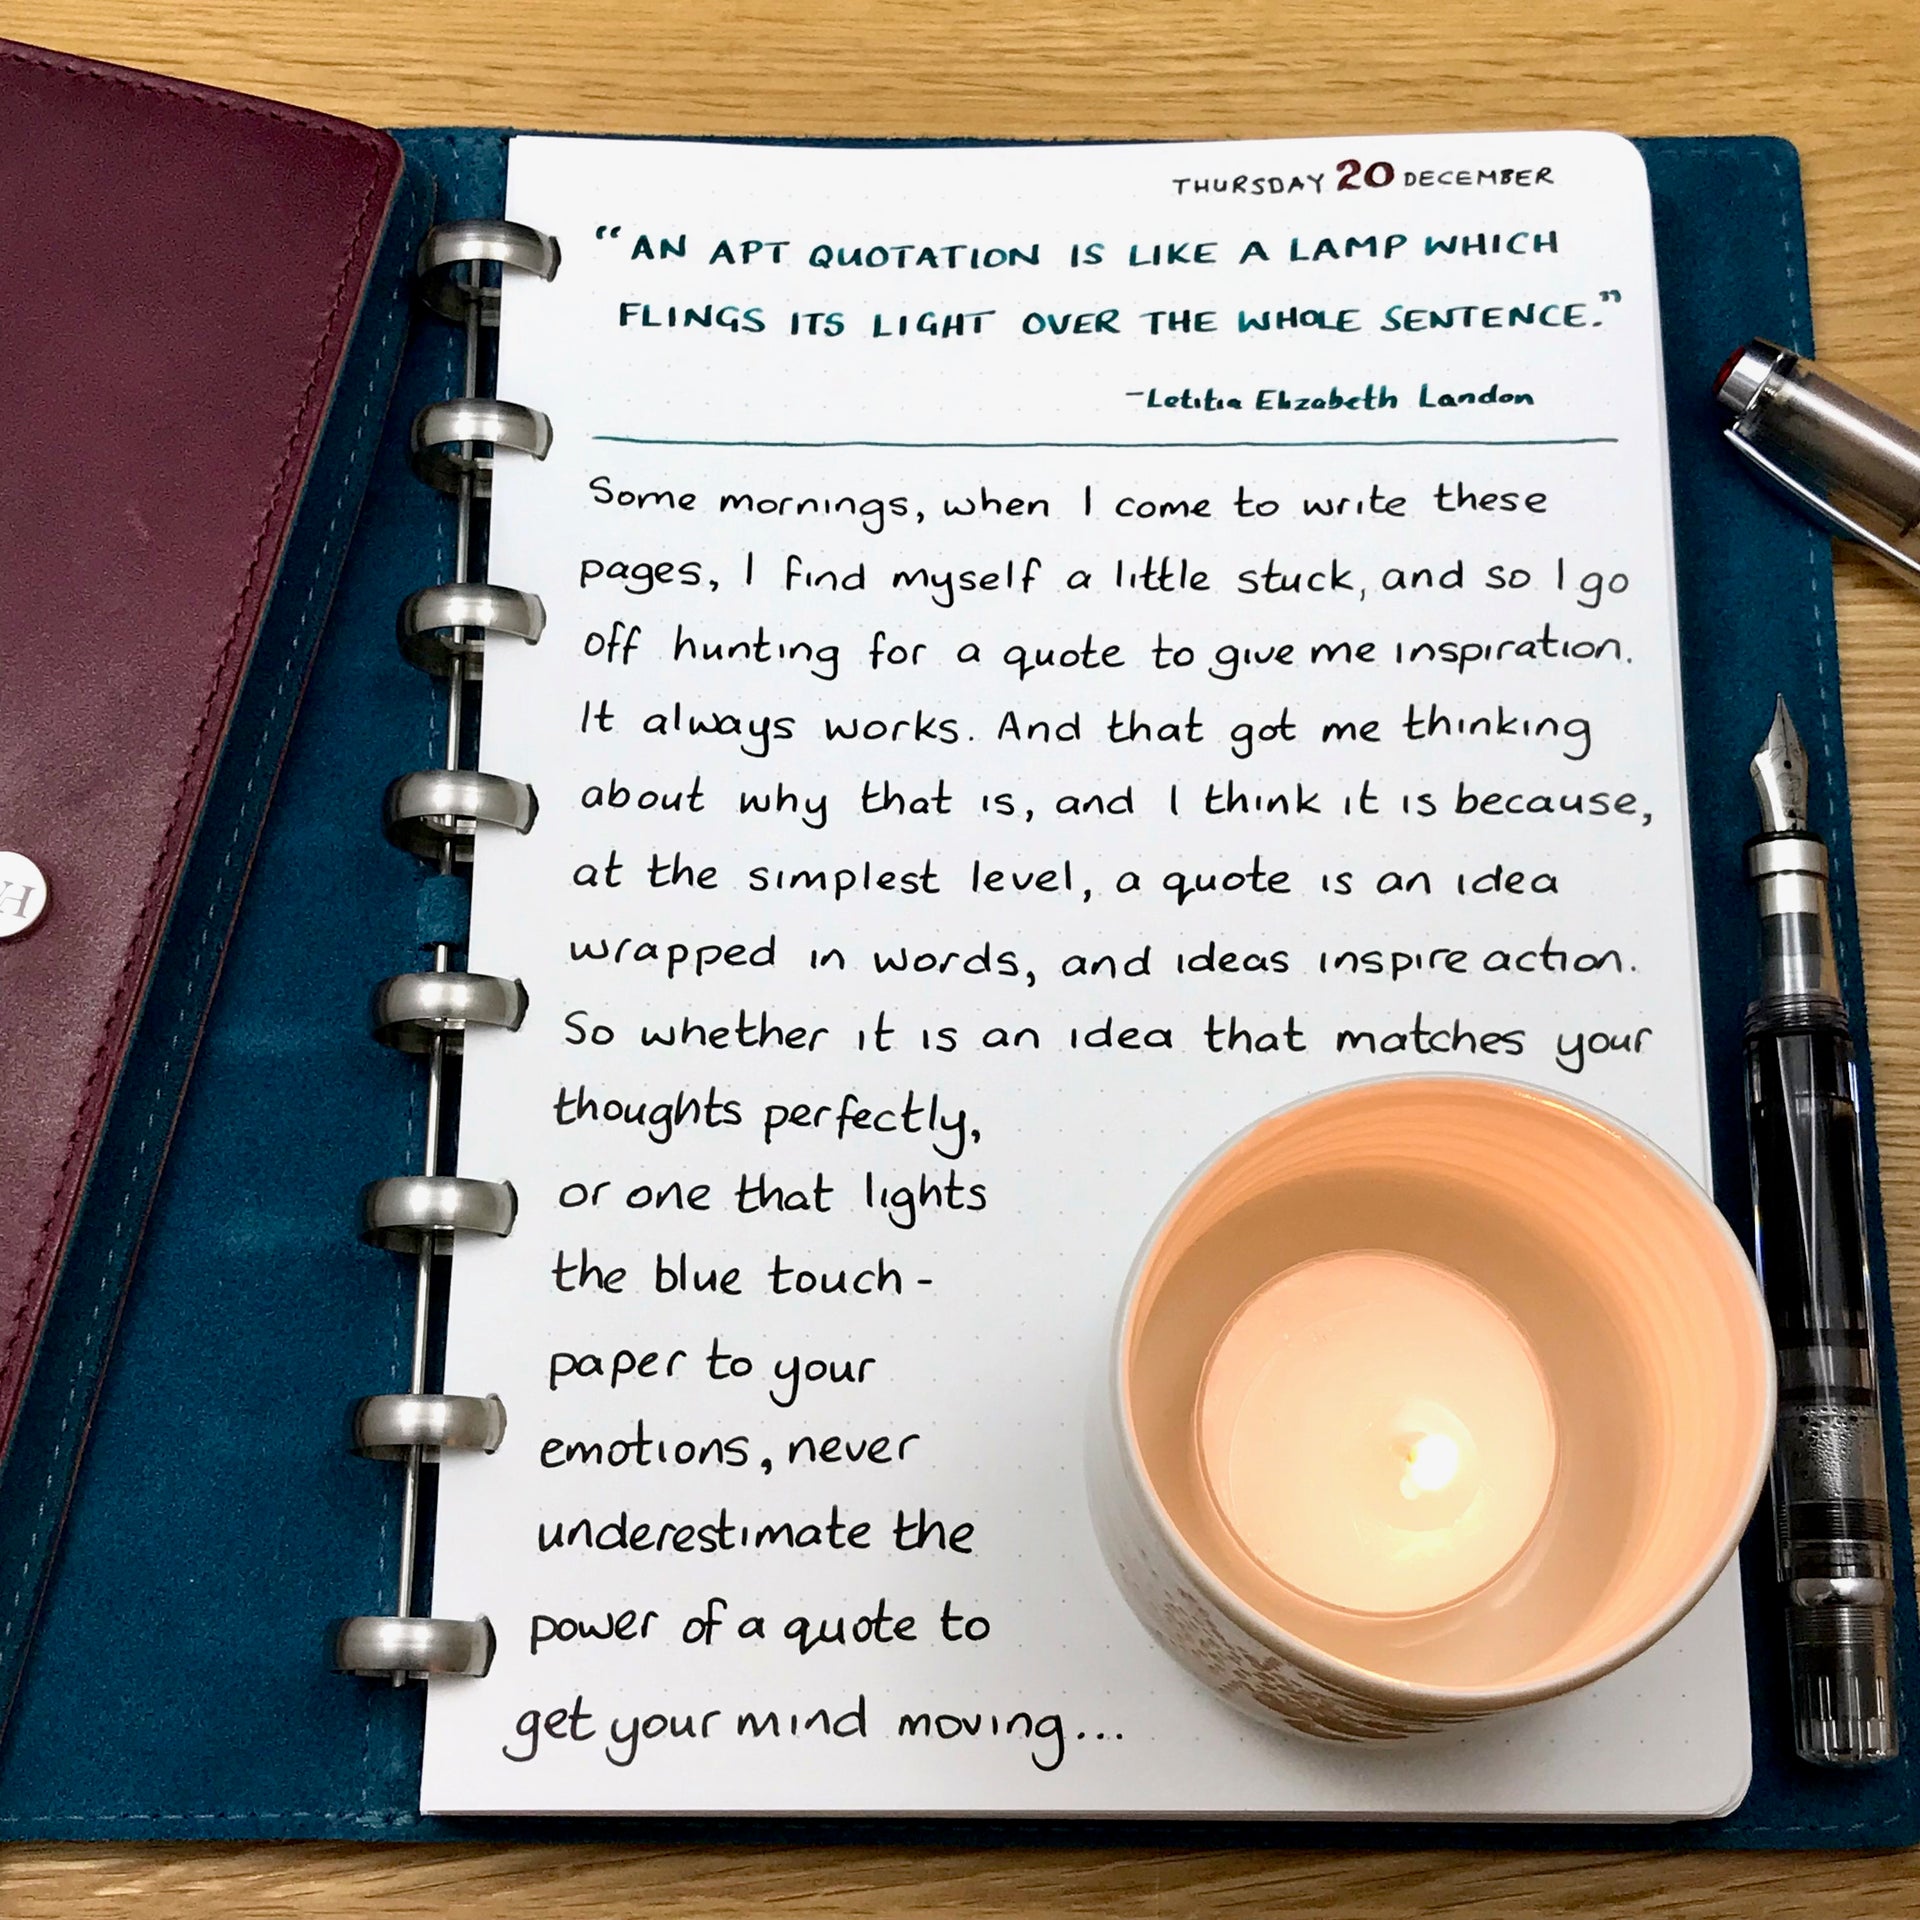 THURSDAY 20 DECEMBER
“AN APT QUOTATION IS LIKE A LAMP WHICH
FLINGS ITS LIGHT OVER THE WHOLE SENTENCE.”
-Letitia Elizabeth Landon
Some mornings, when I come to write these
pages, I find myself a little stuck, and so I go
off hunting for a quote to give me inspiration.
It always works. And that got me thinking
about why that is, and I think it is because,
at the simplest level, a quote is an idea
wrapped in words, and ideas inspire action.
So whether it is an idea that matches your
thoughts perfectly,
or one that lights
the blue touch-
paper to your
emotions, never
underestimate the
power of a quote to
get your mind moving...